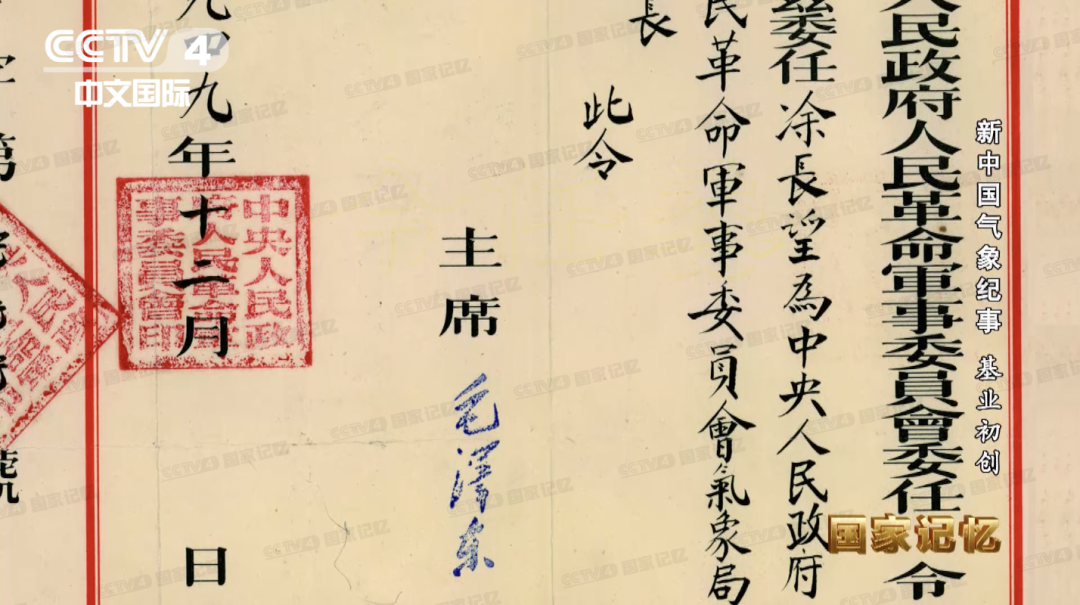 人民政府人民革命軍事委員會委任令
茲委任涂長望為中央人民政府
民革命軍事委員會氣象局
長
此令
主席 毛澤東
九四九年十二月 日
中央人民政
府人民革命軍
事委員會印
字第
號
CCTV 4
中文国际
新中国气象纪事 基业初创
国家记忆